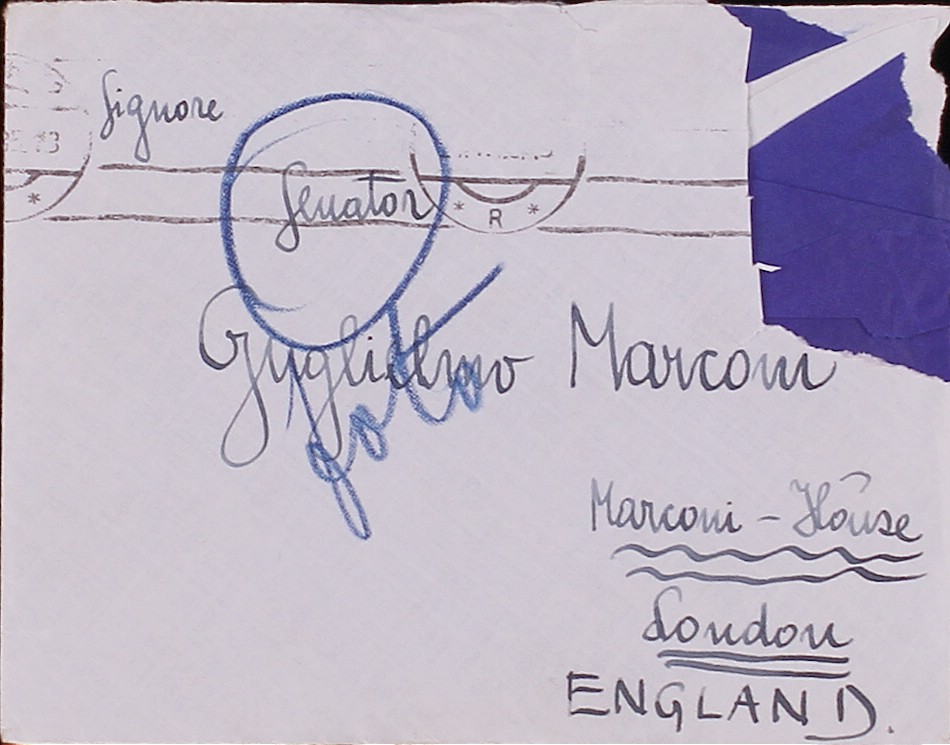 Signore
Senator
* R *
*
Guglielmo Marconi
foto
Marconi - Hoûse
London
ENGLAND.